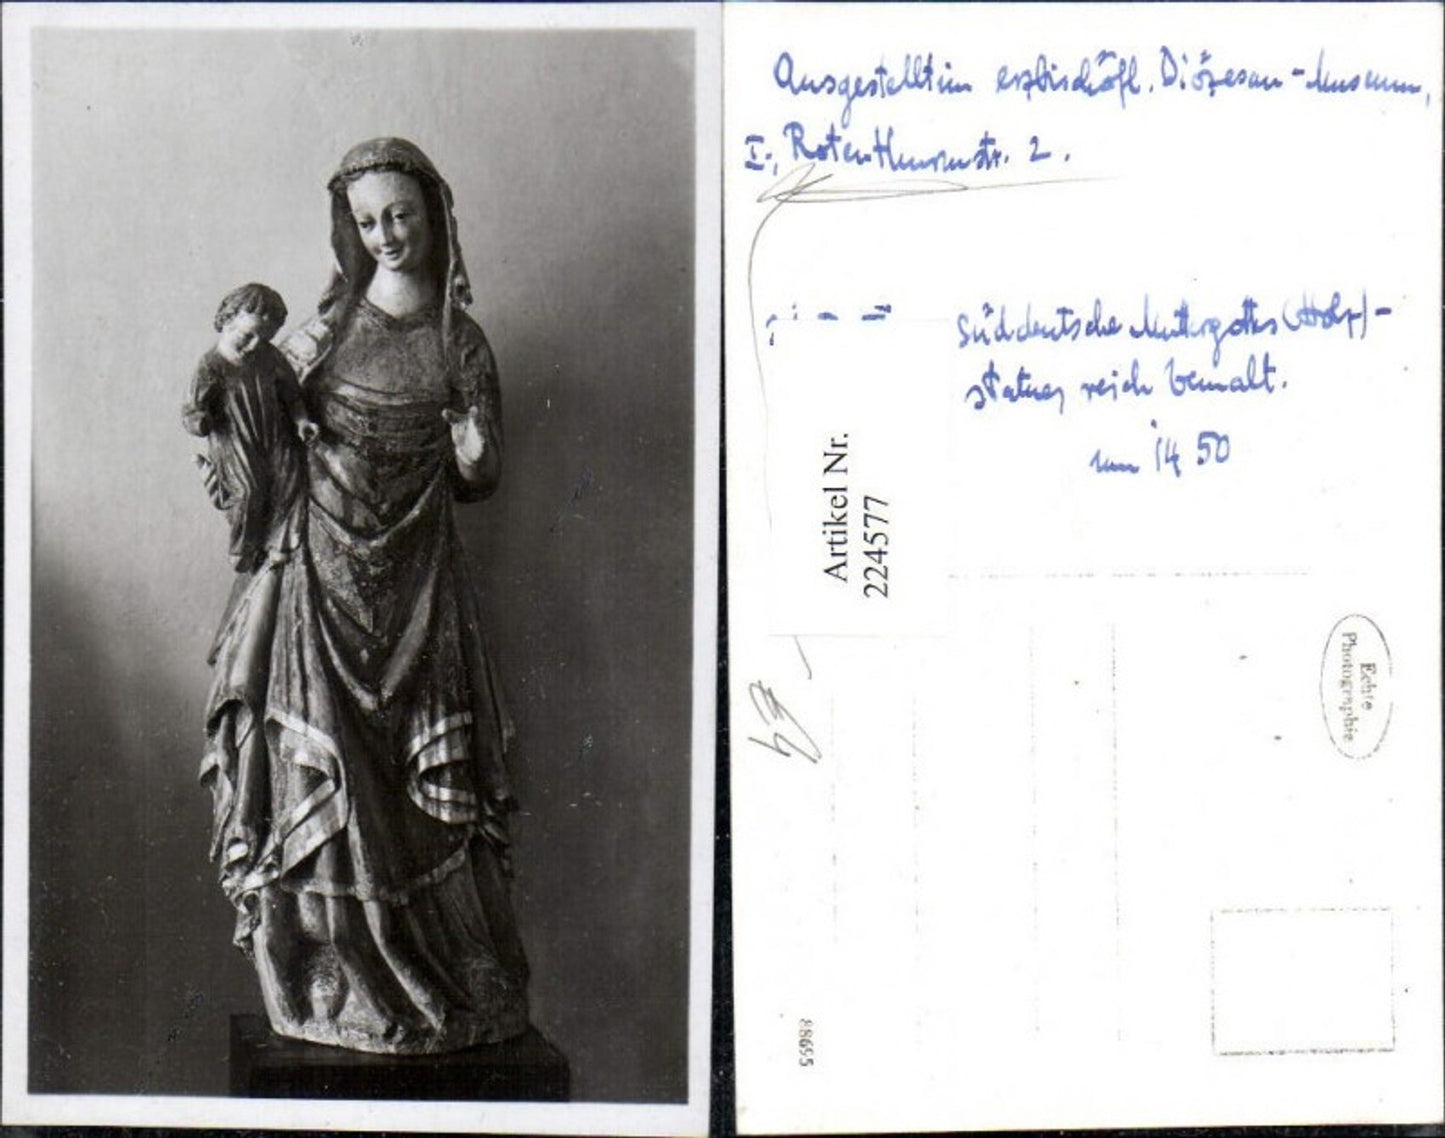 Ausgestellt im erzbischöfl. Diözesan-Museum,
I., Rotenthurmstr. 2.
Süddeutsche Muttergottes (Holz)-
statue, reich bemalt.
um 1450
Artikel Nr.
224577
Echte
Photographie
88695